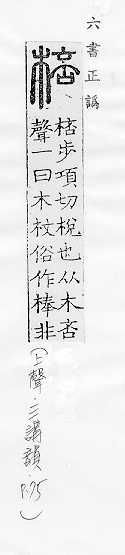 六書正譌
棓
棓步項切梲也从木咅
聲一曰木杖俗作棒非
(上聲.三講韻.P.95)